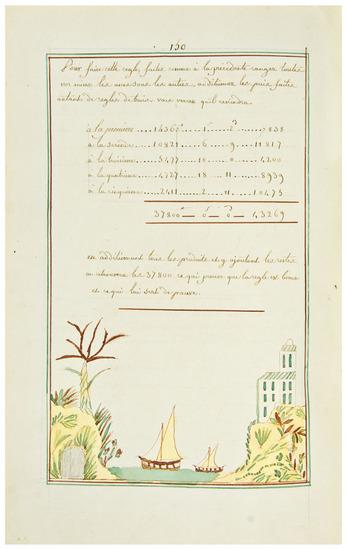 150
Pour faire cette regle, faites comme à la precedente ranger toutes
vos mises les unes sous les autres, additionnez les puis faites
autant de regles de trois, vous verrez qu'il reviendra.
à la premiere ..... 14362 ..... 1 ..... 2 ..... 7838
à la seconde ..... 10821 ..... 6 ..... 9 ..... 11817
à la troisieme ..... 5477 ..... 10 ..... 0 ..... 4200
à la quatrieme ..... 4727 ..... 18 ..... 11 ..... 8939
à la cinquieme ..... 2411 ..... 2 ..... 11 ..... 10475
37800 ..... 0 ..... 0 ..... 43269
en additionnant tous les produits et y ajoutant les restes
on retrouvera les 37800 ce qui prouve que la regle est bonne
et ce qui lui sert de preuve.